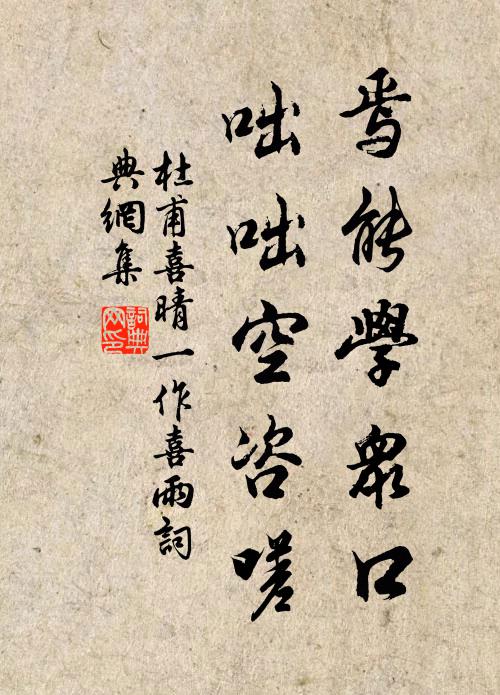 焉能學衆口
咄咄空咨嗟
杜甫喜晴一作喜雨詞
典網集
詞典网印